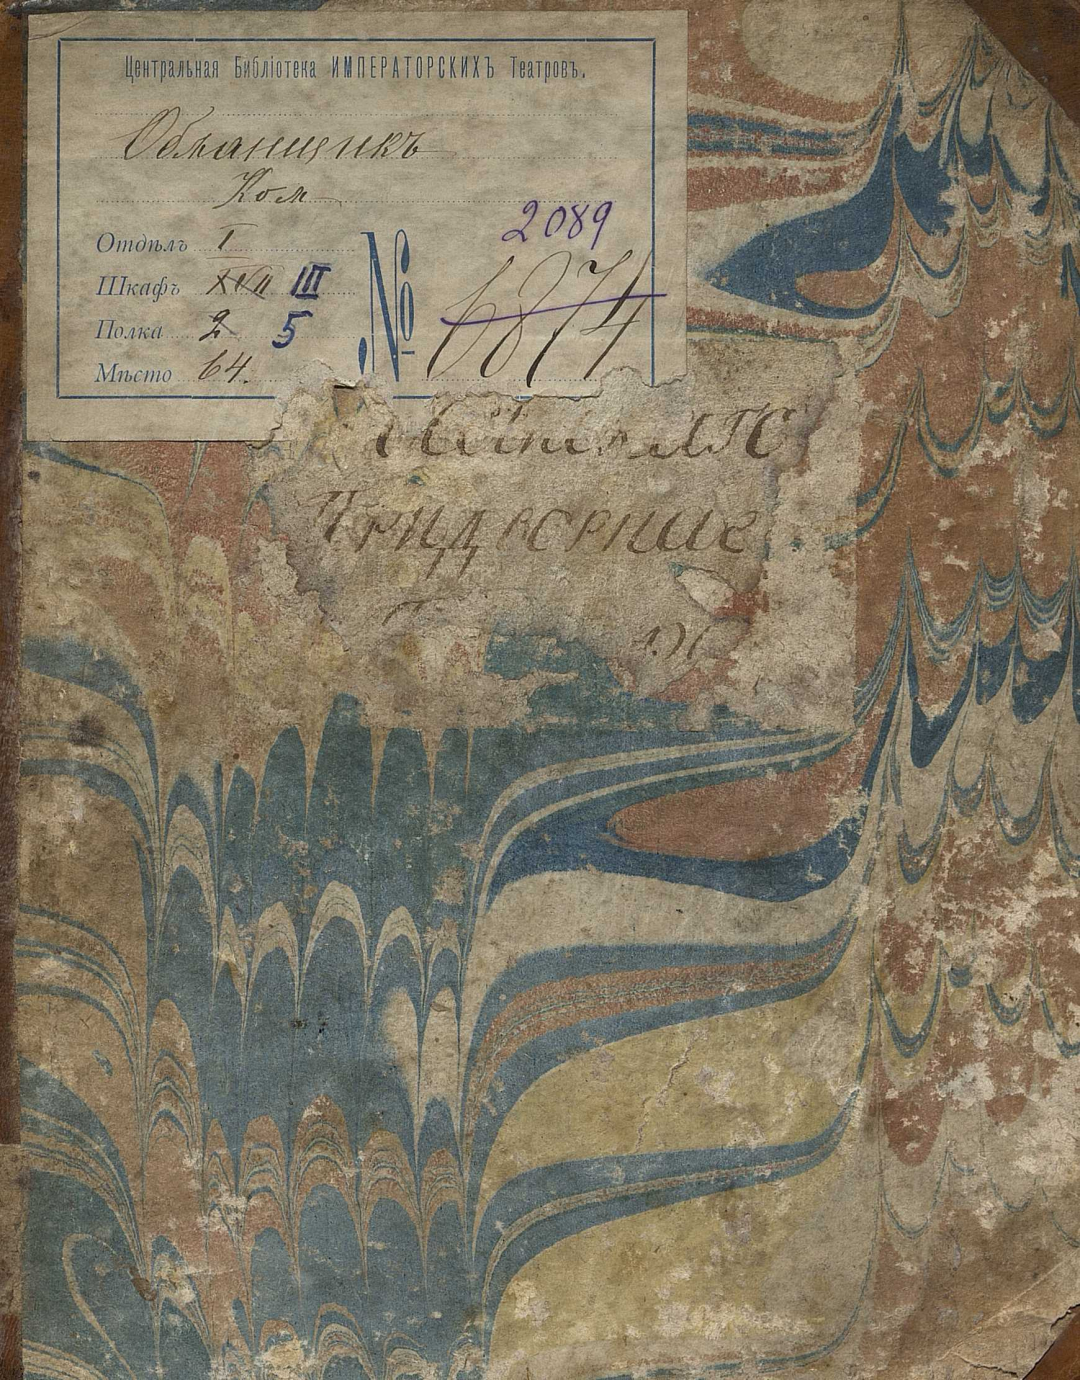 Центральная Библіотека ИМПЕРАТОРСКИХЪ Театровъ.
Обманщикъ
Ком
Отдѣлъ I
Шкафъ XVII III
Полка 2 5
Мѣсто 64.
№ 2089
6874
Придворнаго